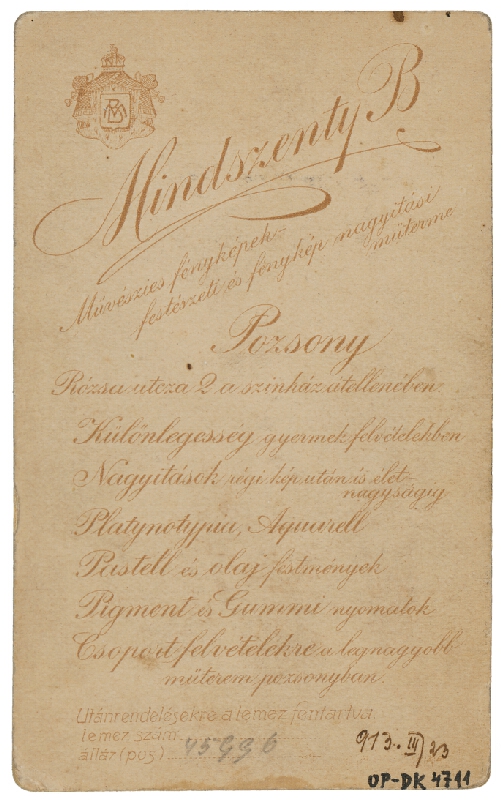 Mindszenty B
Művészies fényképek-
festészeti és fénykép nagyitási
műterme
Pozsony
Rózsa utcza 2 a szinház átellenében.
Különlegesség gyermek felvételekben
Nagyitások régi kép után is élet-
nagyságig
Platynotypia, Aquarell
Pastell és olaj festmények
Pigment és Gummi nyomatok
Csoport felvételékre a legnagyobb
műterem pozsonyban.
Utánrendelésekre a lemez fentartva
Lemez szám
állás (poz) 45996
913. III/23
UP-DK 4711